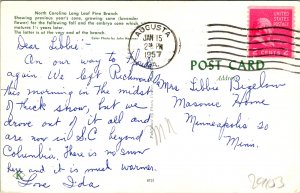 North Carolina Long Leaf Pine Branch
Showing previous year's cone, growing cone (lavender
flower) for the following fall and the embryo cone which
matures 1½ years later.
The latter is at the very end of the branch.
Color Photo by
AUGUSTA
JAN 15
2 PM
1957
2 CENTS 2
POST CARD
Address
Dear Libbie:
On our way to Florida
again. We left Richmond
this morning in the midst
of thick snow, but we
drove out of it all and
are now in S.C. beyond
Columbia. There is no snow
here and it is much warmer.
Love Ida
Mrs Libbie Bigelow
Masonic Home
Minneapolis 20
Minn.